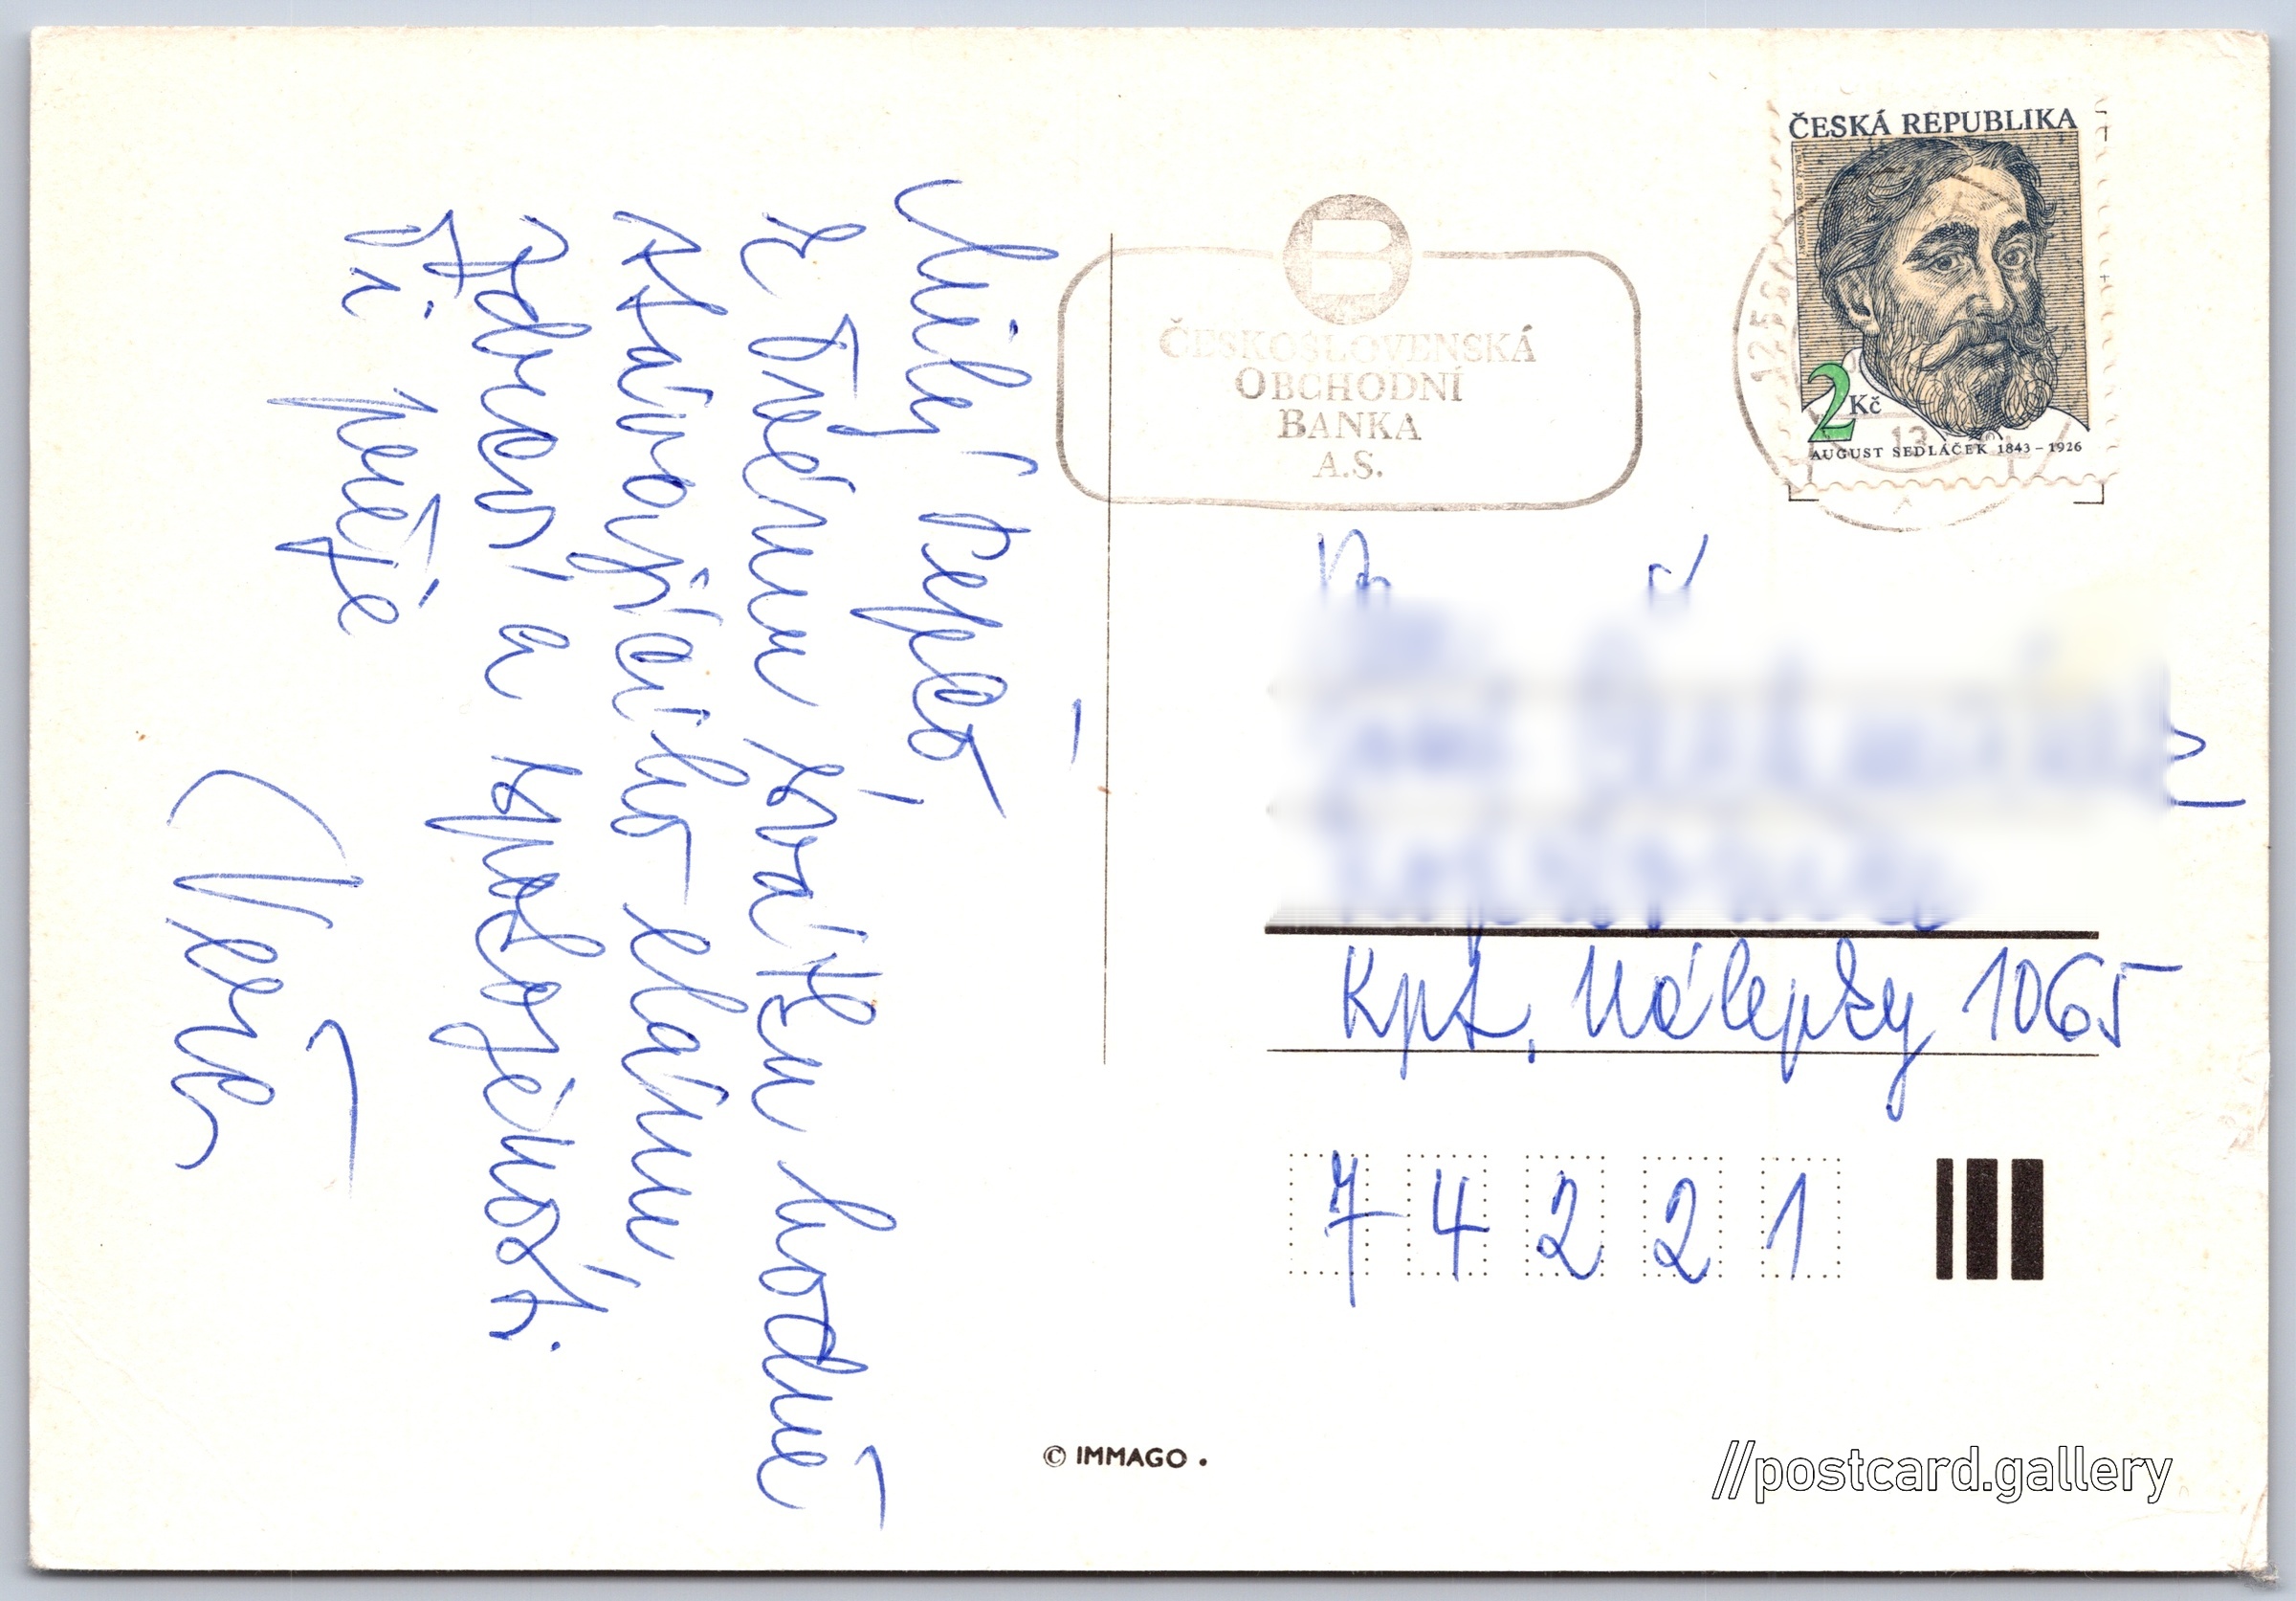 Milý Pepo,
k Tvému svátku hodně
stávajícího elánu,
zdraví a spokojenosti
Ti přeje
Věra
ČESKOSLOVENSKÁ
OBCHODNÍ
BANKA
A.S.
ČESKÁ REPUBLIKA
2 Kč
AUGUST SEDLÁČEK 1843 – 1926
Kpt. Nálepky 1065
74221
© IMMAGO.
//postcard.gallery